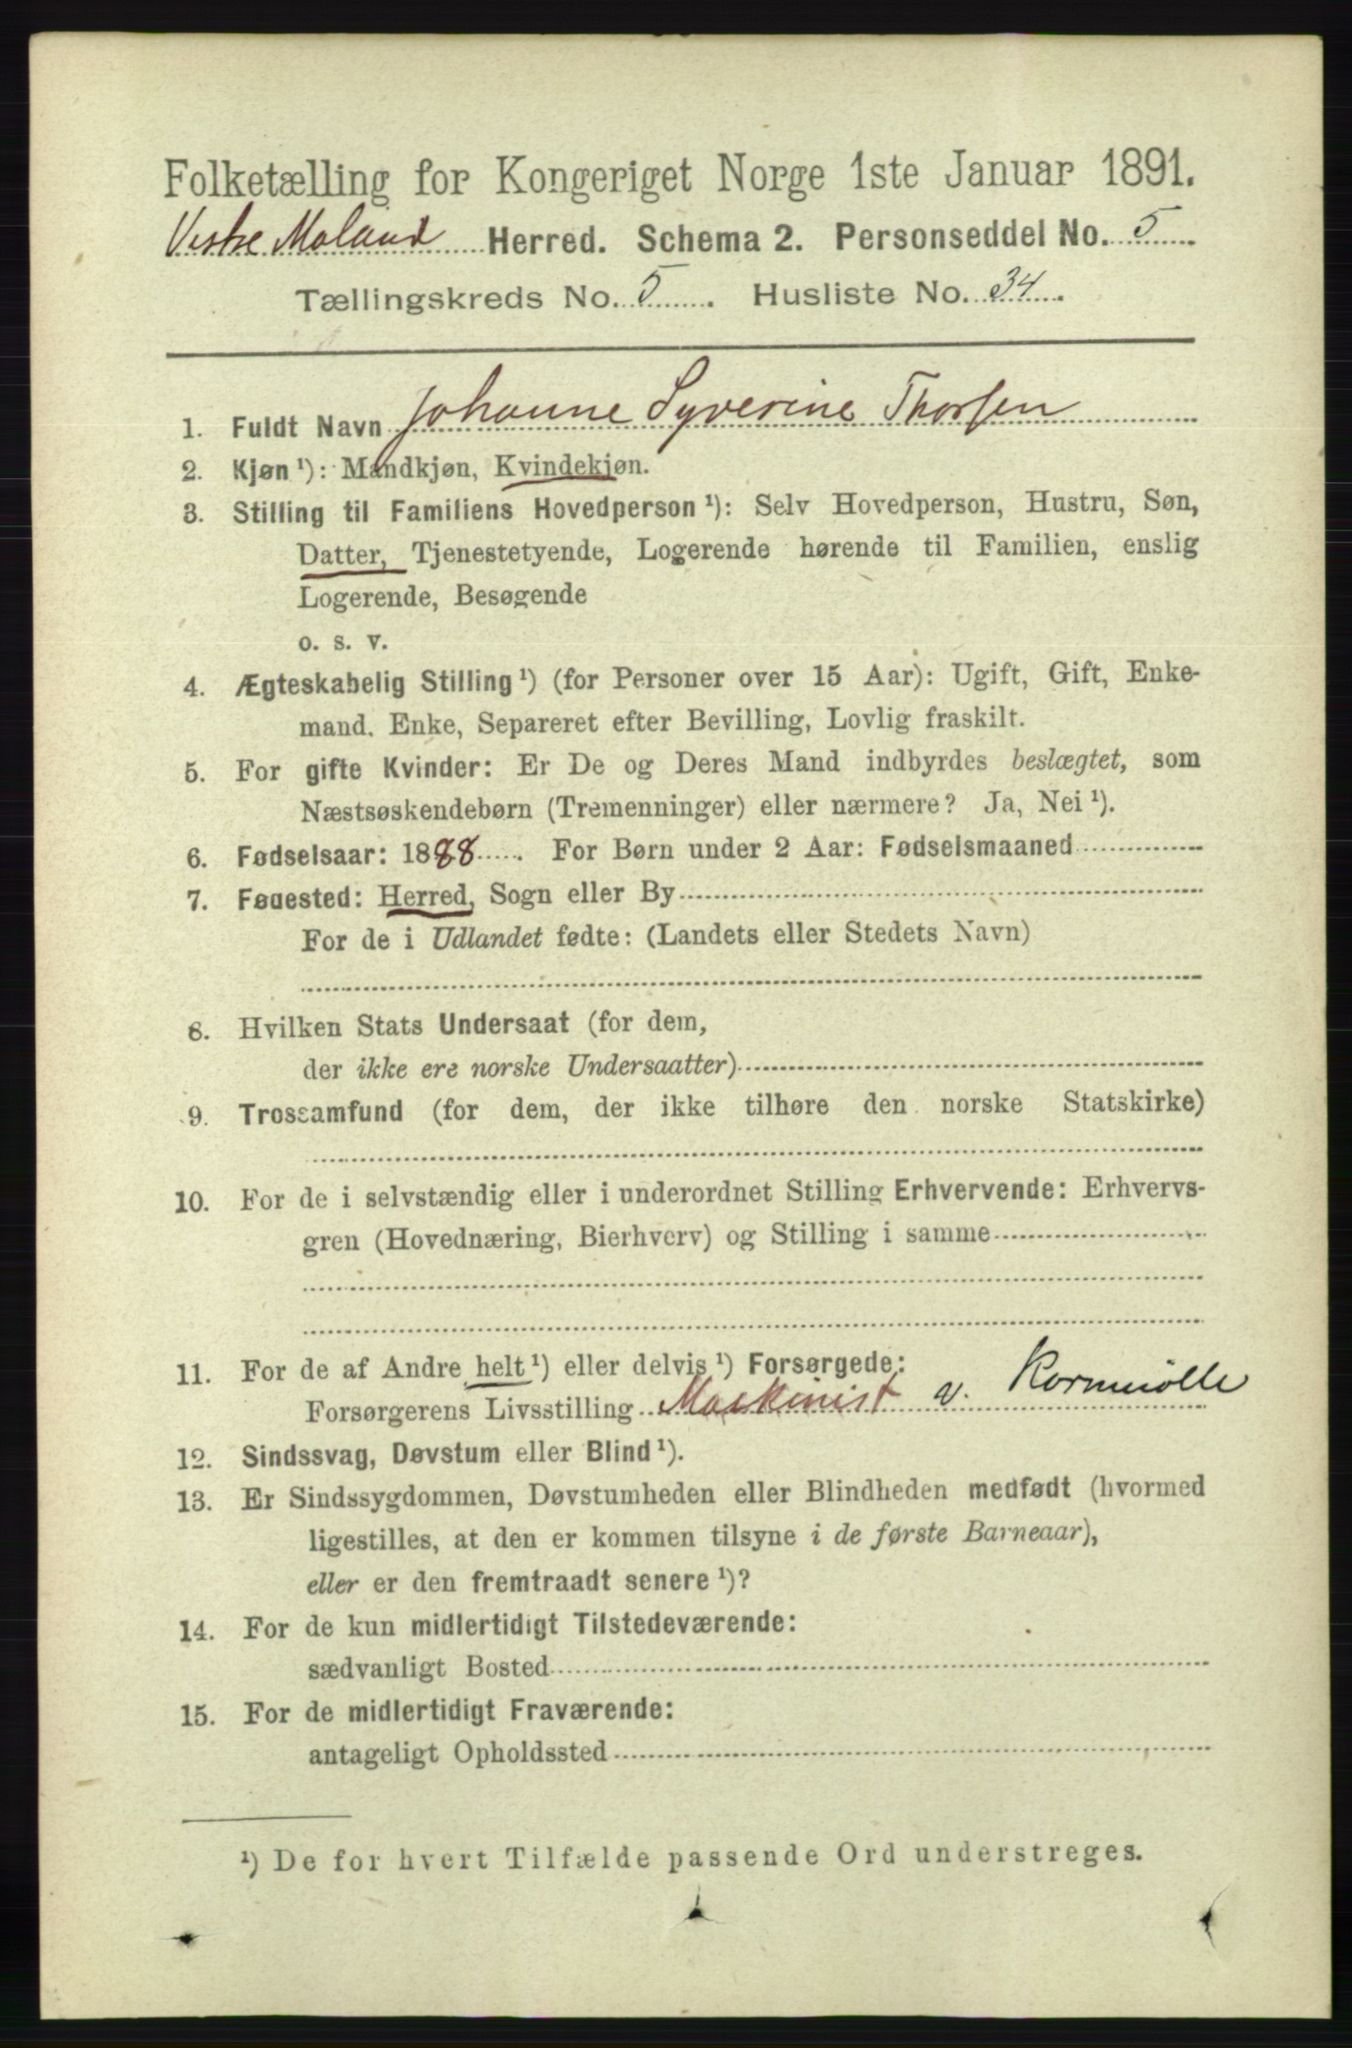 Folketælling for Kongeriget Norge 1ste Januar 1891.
Vestre Moland Herred. Schema 2. Personseddel No. 5
Tællingskreds No. 5. Husliste No. 34.
1. Fuldt Navn Johanne Syverine Thorsen
2. Kjøn ¹): Mandkjøn, Kvindekjøn.
3. Stilling til Familiens Hovedperson ¹): Selv Hovedperson, Hustru, Søn,
Datter, Tjenestetyende, Logerende hørende til Familien, enslig
Logerende, Besøgende
o. s. v.
4. Ægteskabelig Stilling ¹) (for Personer over 15 Aar): Ugift, Gift, Enke-
mand. Enke, Separeret efter Bevilling, Lovlig fraskilt.
5. For gifte Kvinder: Er De og Deres Mand indbyrdes beslægtet, som
Næstsøskendebørn (Tremenninger) eller nærmere? Ja, Nei ¹).
6. Fødselsaar: 1888. For Børn under 2 Aar: Fødselsmaaned
7. Føuested: Herred, Sogn eller By
For de i Udlandet fødte: (Landets eller Stedets Navn)
8. Hvilken Stats Undersaat (for dem,
der ikke ere norske Undersaatter)
9. Trossamfund (for dem, der ikke tilhøre den norske Statskirke)
10. For de i selvstændig eller i underordnet Stilling Erhvervende: Erhvervs-
gren (Hovednæring, Bierhverv) og Stilling i samme
11. For de af Andre helt ¹) eller delvis ¹) Forsørgede:
Forsørgerens Livsstilling Maskinist v. Kornmölle
12. Sindssvag, Døvstum eller Blind ¹).
13. Er Sindssygdommen, Døvstumheden eller Blindheden medfødt (hvormed
ligestilles, at den er kommen tilsyne i de første Barneaar),
eller er den fremtraadt senere ¹)?
14. For de kun midlertidigt Tilstedeværende:
sædvanligt Bosted
15. For de midlertidigt Fraværende:
antageligt Opholdssted
¹) De for hvert Tilfælde passende Ord understreges.